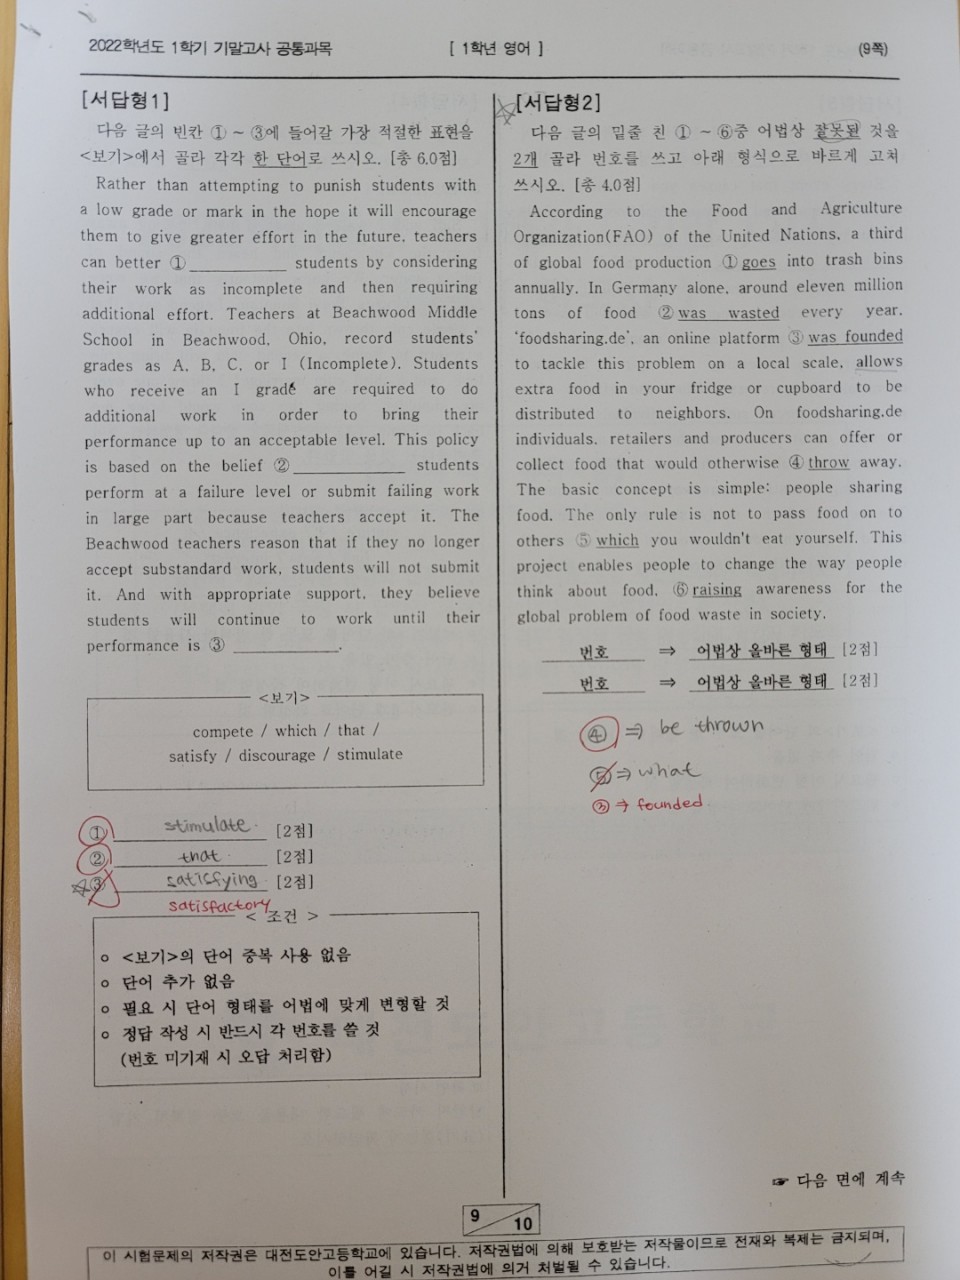 2022학년도 1학기 기말고사 공통과목
[ 1학년 영어 ]
(9쪽)
[서답형1]
다음 글의 빈칸 ① ~ ③에 들어갈 가장 적절한 표현을
<보기>에서 골라 각각 한 단어로 쓰시오. [총 6.0점]
Rather than attempting to punish students with
a low grade or mark in the hope it will encourage
them to give greater effort in the future, teachers
can better ① ____________ students by considering
their work as incomplete and then requiring
additional effort. Teachers at Beachwood Middle
School in Beachwood, Ohio, record students'
grades as A, B, C, or I (Incomplete). Students
who receive an I grade are required to do
additional work in order to bring their
performance up to an acceptable level. This policy
is based on the belief ② ____________ students
perform at a failure level or submit failing work
in large part because teachers accept it. The
Beachwood teachers reason that if they no longer
accept substandard work, students will not submit
it. And with appropriate support, they believe
students will continue to work until their
performance is ③ ____________.
<보기>
compete / which / that /
satisfy / discourage / stimulate
① stimulate [2점]
② that [2점]
③ satisfying [2점]
satisfactory
< 조건 >
○ <보기>의 단어 중복 사용 없음
○ 단어 추가 없음
○ 필요 시 단어 형태를 어법에 맞게 변형할 것
○ 정답 작성 시 반드시 각 번호를 쓸 것
(번호 미기재 시 오답 처리함)
[서답형2]
다음 글의 밑줄 친 ① ~ ⑥중 어법상 잘못된 것을
2개 골라 번호를 쓰고 아래 형식으로 바르게 고쳐
쓰시오. [총 4.0점]
According to the Food and Agriculture
Organization(FAO) of the United Nations, a third
of global food production ① goes into trash bins
annually. In Germany alone, around eleven million
tons of food ② was wasted every year.
'foodsharing.de', an online platform ③ was founded
to tackle this problem on a local scale, allows
extra food in your fridge or cupboard to be
distributed to neighbors. On foodsharing.de
individuals, retailers and producers can offer or
collect food that would otherwise ④ throw away.
The basic concept is simple: people sharing
food. The only rule is not to pass food on to
others ⑤ which you wouldn't eat yourself. This
project enables people to change the way people
think about food, ⑥ raising awareness for the
global problem of food waste in society.
번호 ⇒ 어법상 올바른 형태 [2점]
번호 ⇒ 어법상 올바른 형태 [2점]
④ ⇒ be thrown
⑤ ⇒ what
③ → founded
☞ 다음 면에 계속
9 / 10
이 시험문제의 저작권은 대전도안고등학교에 있습니다. 저작권법에 의해 보호받는 저작물이므로 전재와 복제는 금지되며,
이를 어길 시 저작권법에 의거 처벌될 수 있습니다.